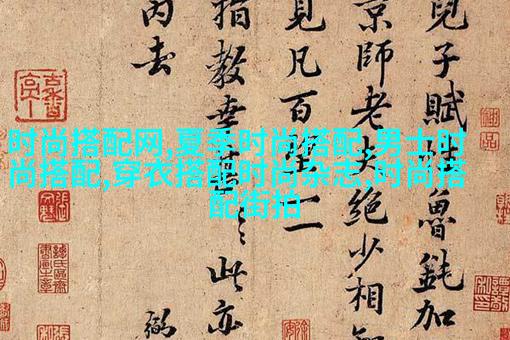 时尚搭配网,夏季时尚搭配,男士时
尚搭配,穿衣搭配时尚杂志,时尚搭
配街拍
兒子賦性魯鈍加
京師老夫絕少相知
見凡百
指教幸甚此亦
丙去
弼